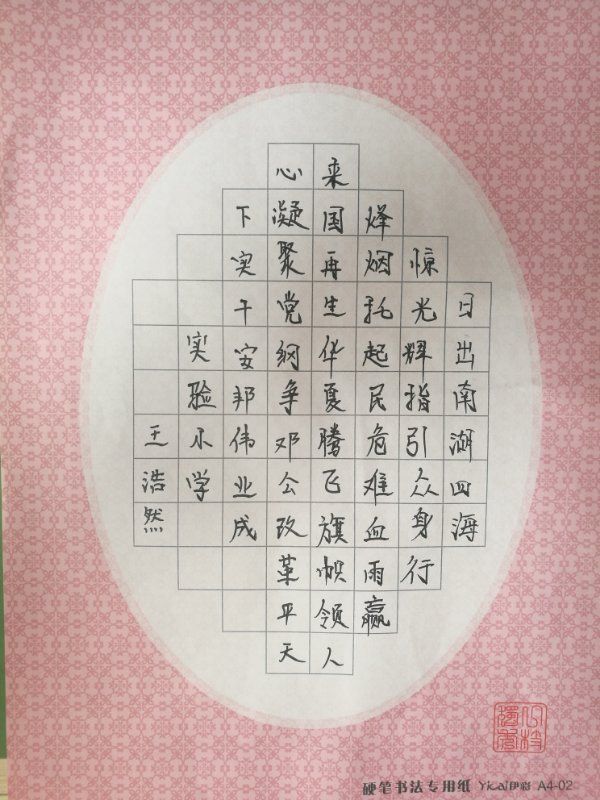 日出南湖四海
惊光辉指引众身行
烽烟乱起民危难血雨赢
来国再生华夏腾飞旗帜领人
心凝聚党纲争邓公改革平天
下实干安邦伟业成
实验小学
王浩然
硬笔书法专用纸 Yicai伊彩 A4-02